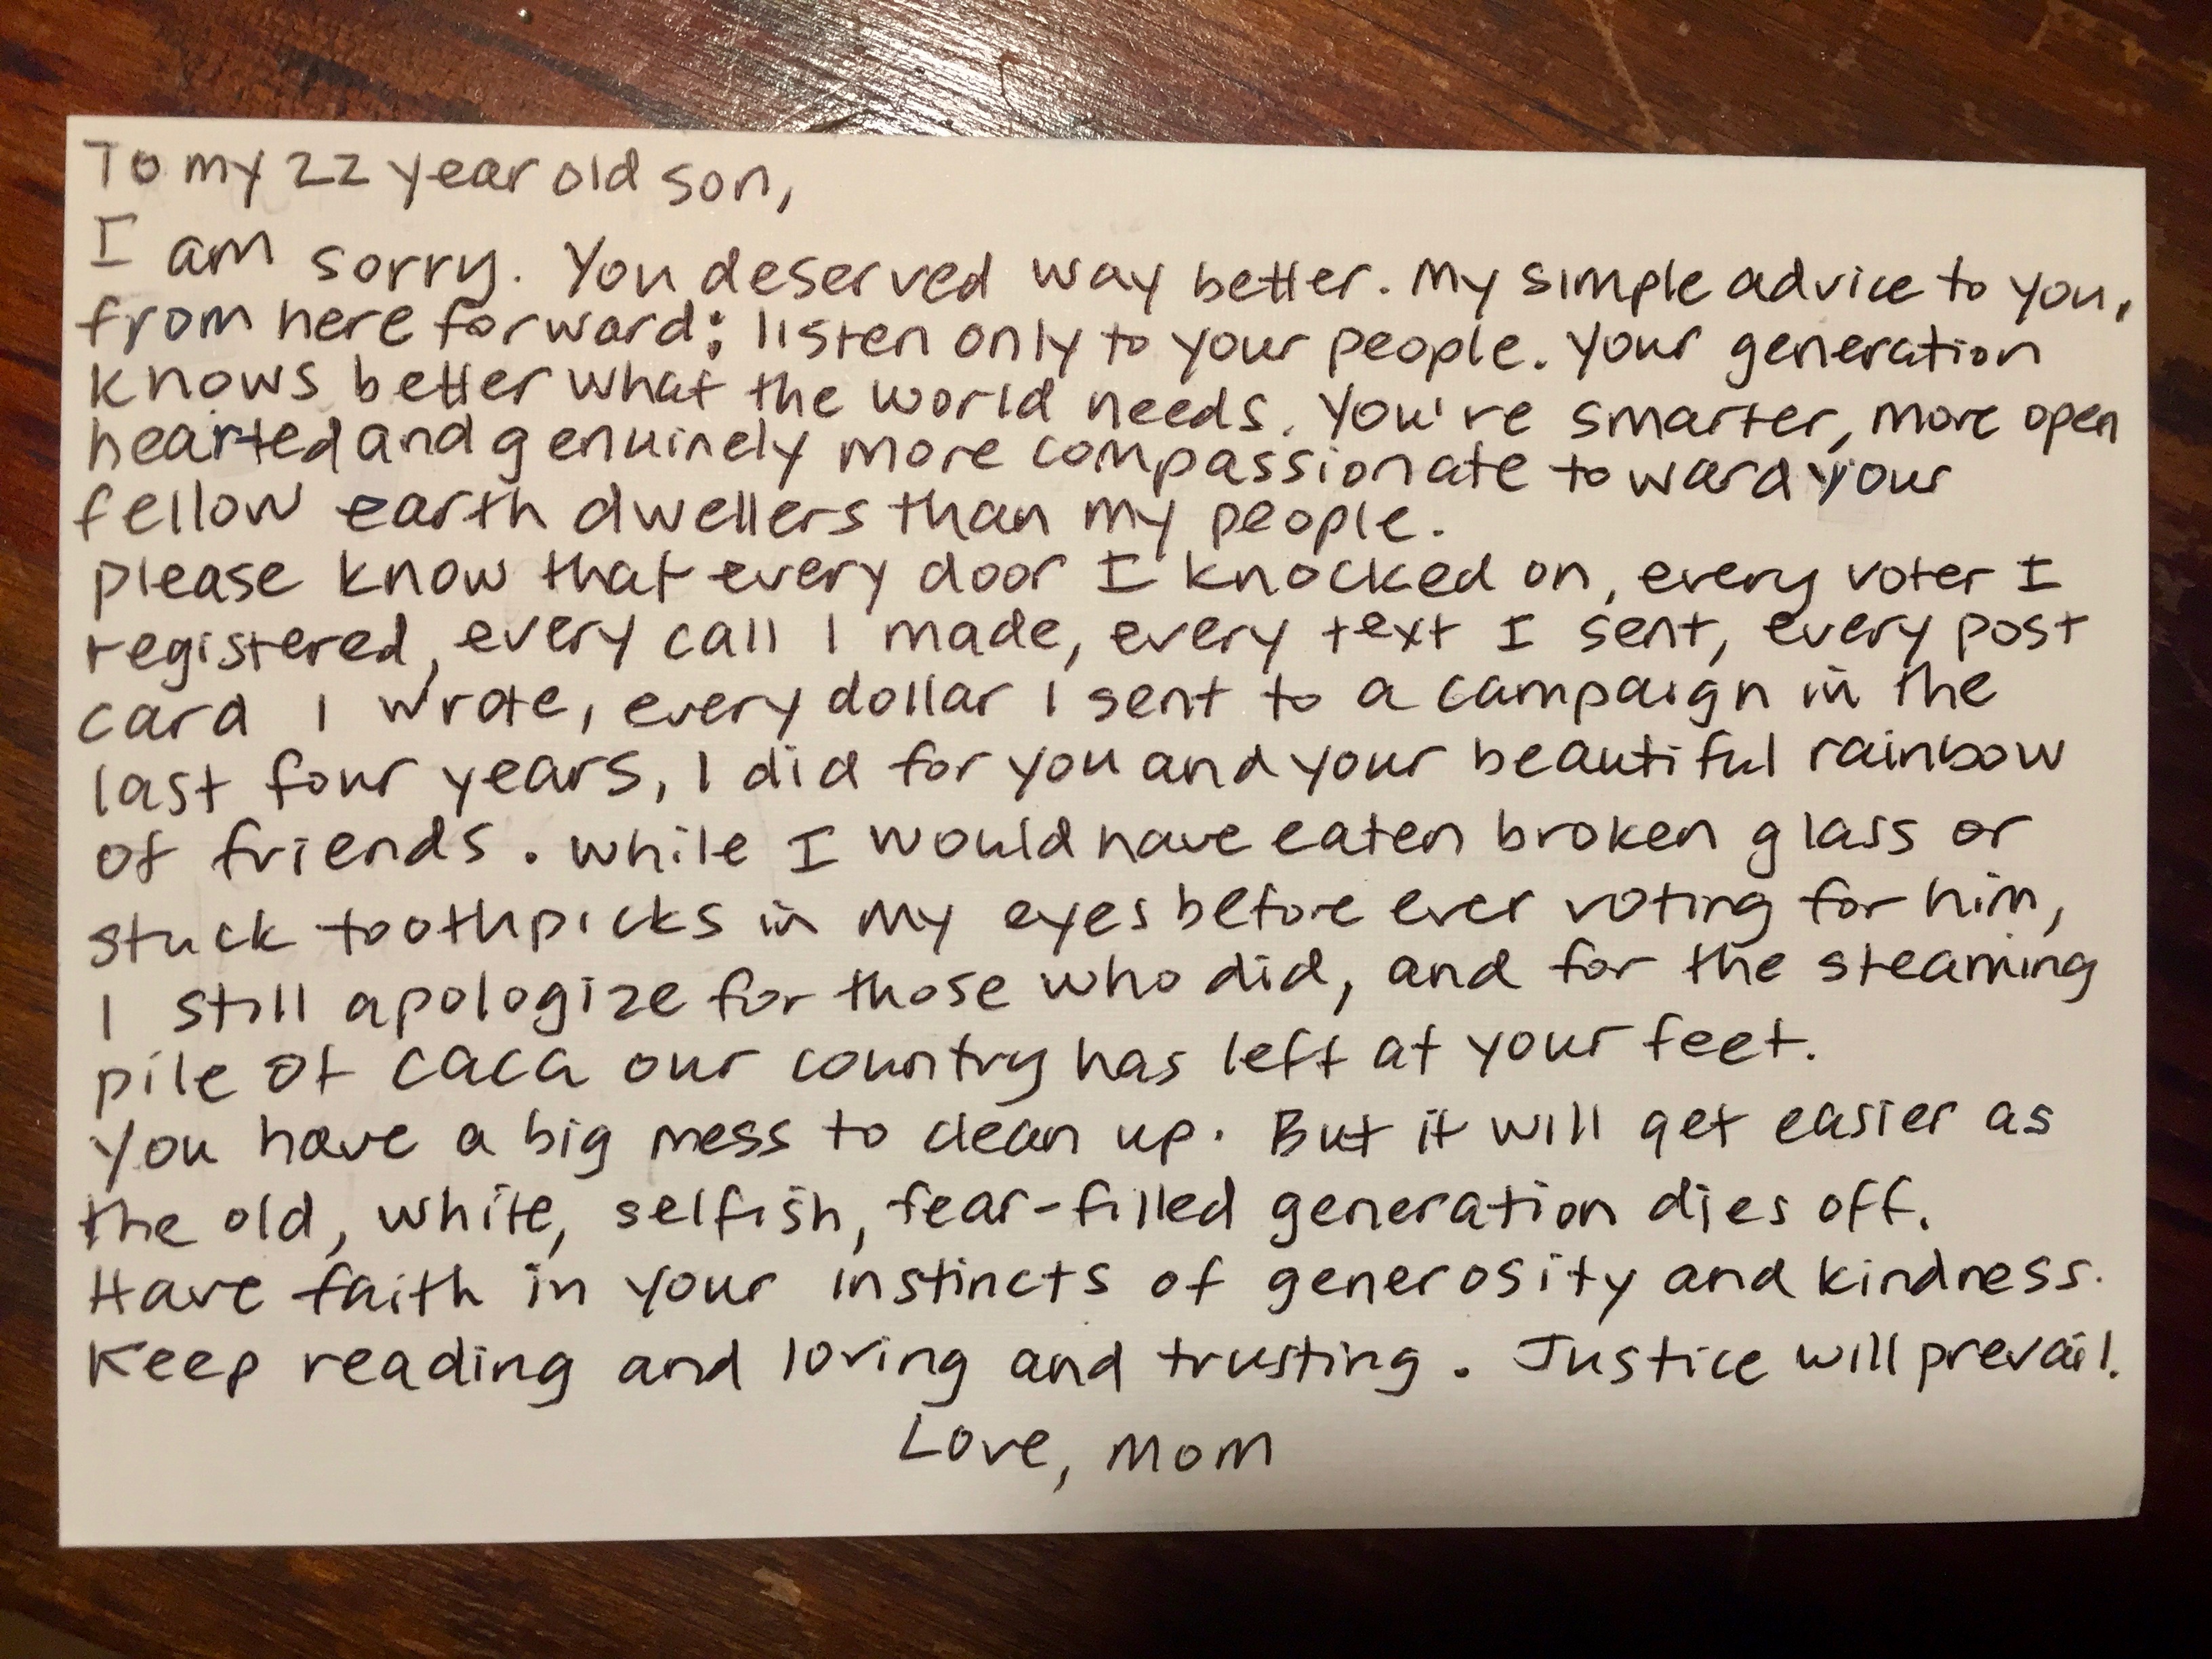 To my 22 year old son,
I am sorry. You deserved way better. My simple advice to you,
from here forward: listen only to your people. Your generation
knows better what the world needs. You're smarter, more open
hearted and genuinely more compassionate toward your
fellow earth dwellers than my people.
please know that every door I knocked on, every voter I
registered, every call I made, every text I sent, every post
card I wrote, every dollar I sent to a campaign in the
last four years, I did for you and your beautiful rainbow
of friends. While I would have eaten broken glass or
stuck toothpicks in my eyes before ever voting for him,
I still apologize for those who did, and for the steaming
pile of caca our country has left at your feet.
You have a big mess to clean up. But it will get easier as
the old, white, selfish, fear-filled generation dies off.
Have faith in your instincts of generosity and kindness.
Keep reading and loving and trusting. Justice will prevail.
Love, Mom